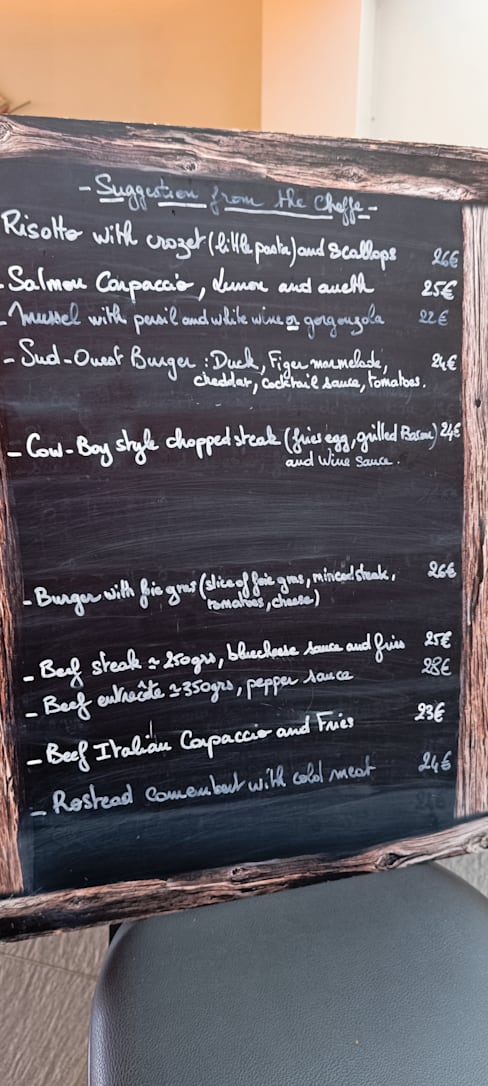 - Suggestion from the Cheffe -
Risotto with crozet (little pasta) and Scallops 26€
- Salmon Carpaccio, Lemon and aneth 25€
- Mussel with persil and white wine or gorgonzola 22€
- Sud-Ouest Burger : Duck, Figer marmelade, 24€
cheddar, cocktail sauce, tomatoes.
- Cow-Boy style chopped steak (fries egg, grilled Bacon) 24€
and Wine Sauce.
- Burger with foie gras (slice of foie gras, minced steak, 26€
tomatoes, cheese)
- Beef steak ≃ 250grs, bluecheese sauce and fries 25€
- Beef entrecôte ≃ 350grs, pepper sauce 28€
- Beef Italian Carpaccio and Fries 23€
- Rostead Camembert with cold meat 24€